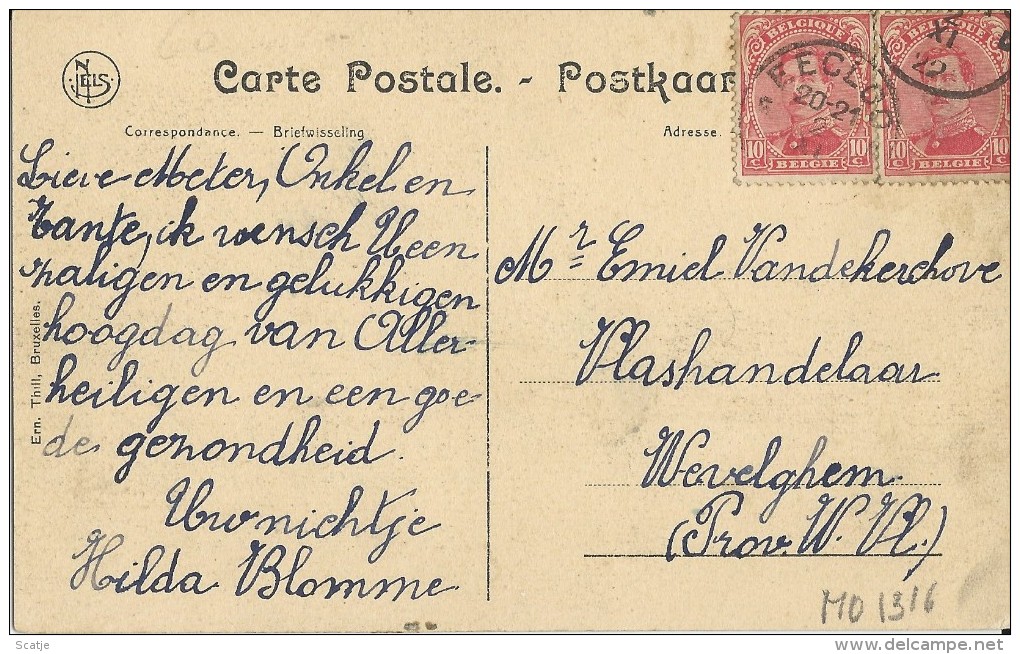 NELS
Carte Postale. - Postkaar
Correspondance. — Briefwisseling
Adresse.
BELGIQUE
10 C BELGIE 10 C
BELGIQUE
10 C BELGIE 10 C
EECLOO
20-21
XI
Lieve Meter, Onkel en
Tante, ik wensch U een
zaligen en gelukkigen
hoogdag van Aller-
heiligen en een goe-
de gezondheid.
Uw nichtje
Hilda Blomme
Mr Emiel Vandekerchove
Vlashandelaar
Wevelghem
(Prov. W. Vl.)
Ern. Thill, Bruxelles.
MO 1316
Scatje
delcampe.net